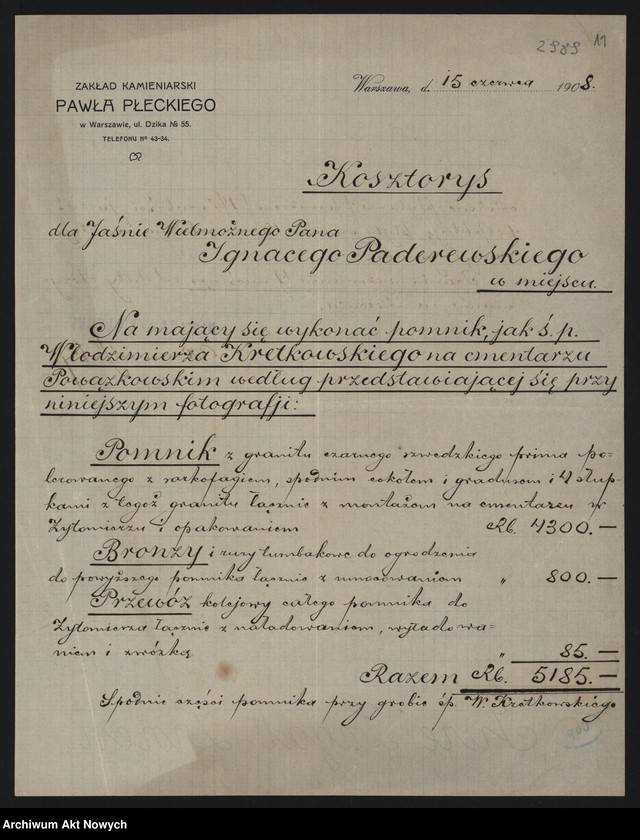 2989 11
ZAKŁAD KAMIENIARSKI
PAWŁA PŁECKIEGO
w Warszawie, ul. Dzika № 55.
TELEFONU № 43-34.
Warszawa, d. 15 czerwca 1908.
Kosztorys
dla Jaśnie Wielmożnego Pana
Ignacego Paderewskiego
w miejscu.
Na mający się wykonać pomnik, jak ś. p.
Włodzimierza Kretkowskiego na cmentarzu
Powązkowskim według przedstawiającej się przy
niniejszym fotografji:
Pomnik z granitu czarnego szwedzkiego prima po-
lerowanego z sarkofagiem, spodnim cokołem i gradusem i 4 słup-
kami z tegoż granitu łącznie z montażem na cmentarzu w
Żytomierzu i opakowaniem Rb. 4300.—
Bronzy i rury tumbakowe do ogrodzenia
do powyższego pomnika łącznie z umocowaniem " 800.—
Przewóz kolejowy całego pomnika do
Żytomierza łącznie z naładowaniem, wyładowa-
niem i zwózką " 85.—
Razem Rb. 5185.—
Spodnie części pomnika przy grobie śp. W. Kretkowskiego
Archiwum Akt Nowych